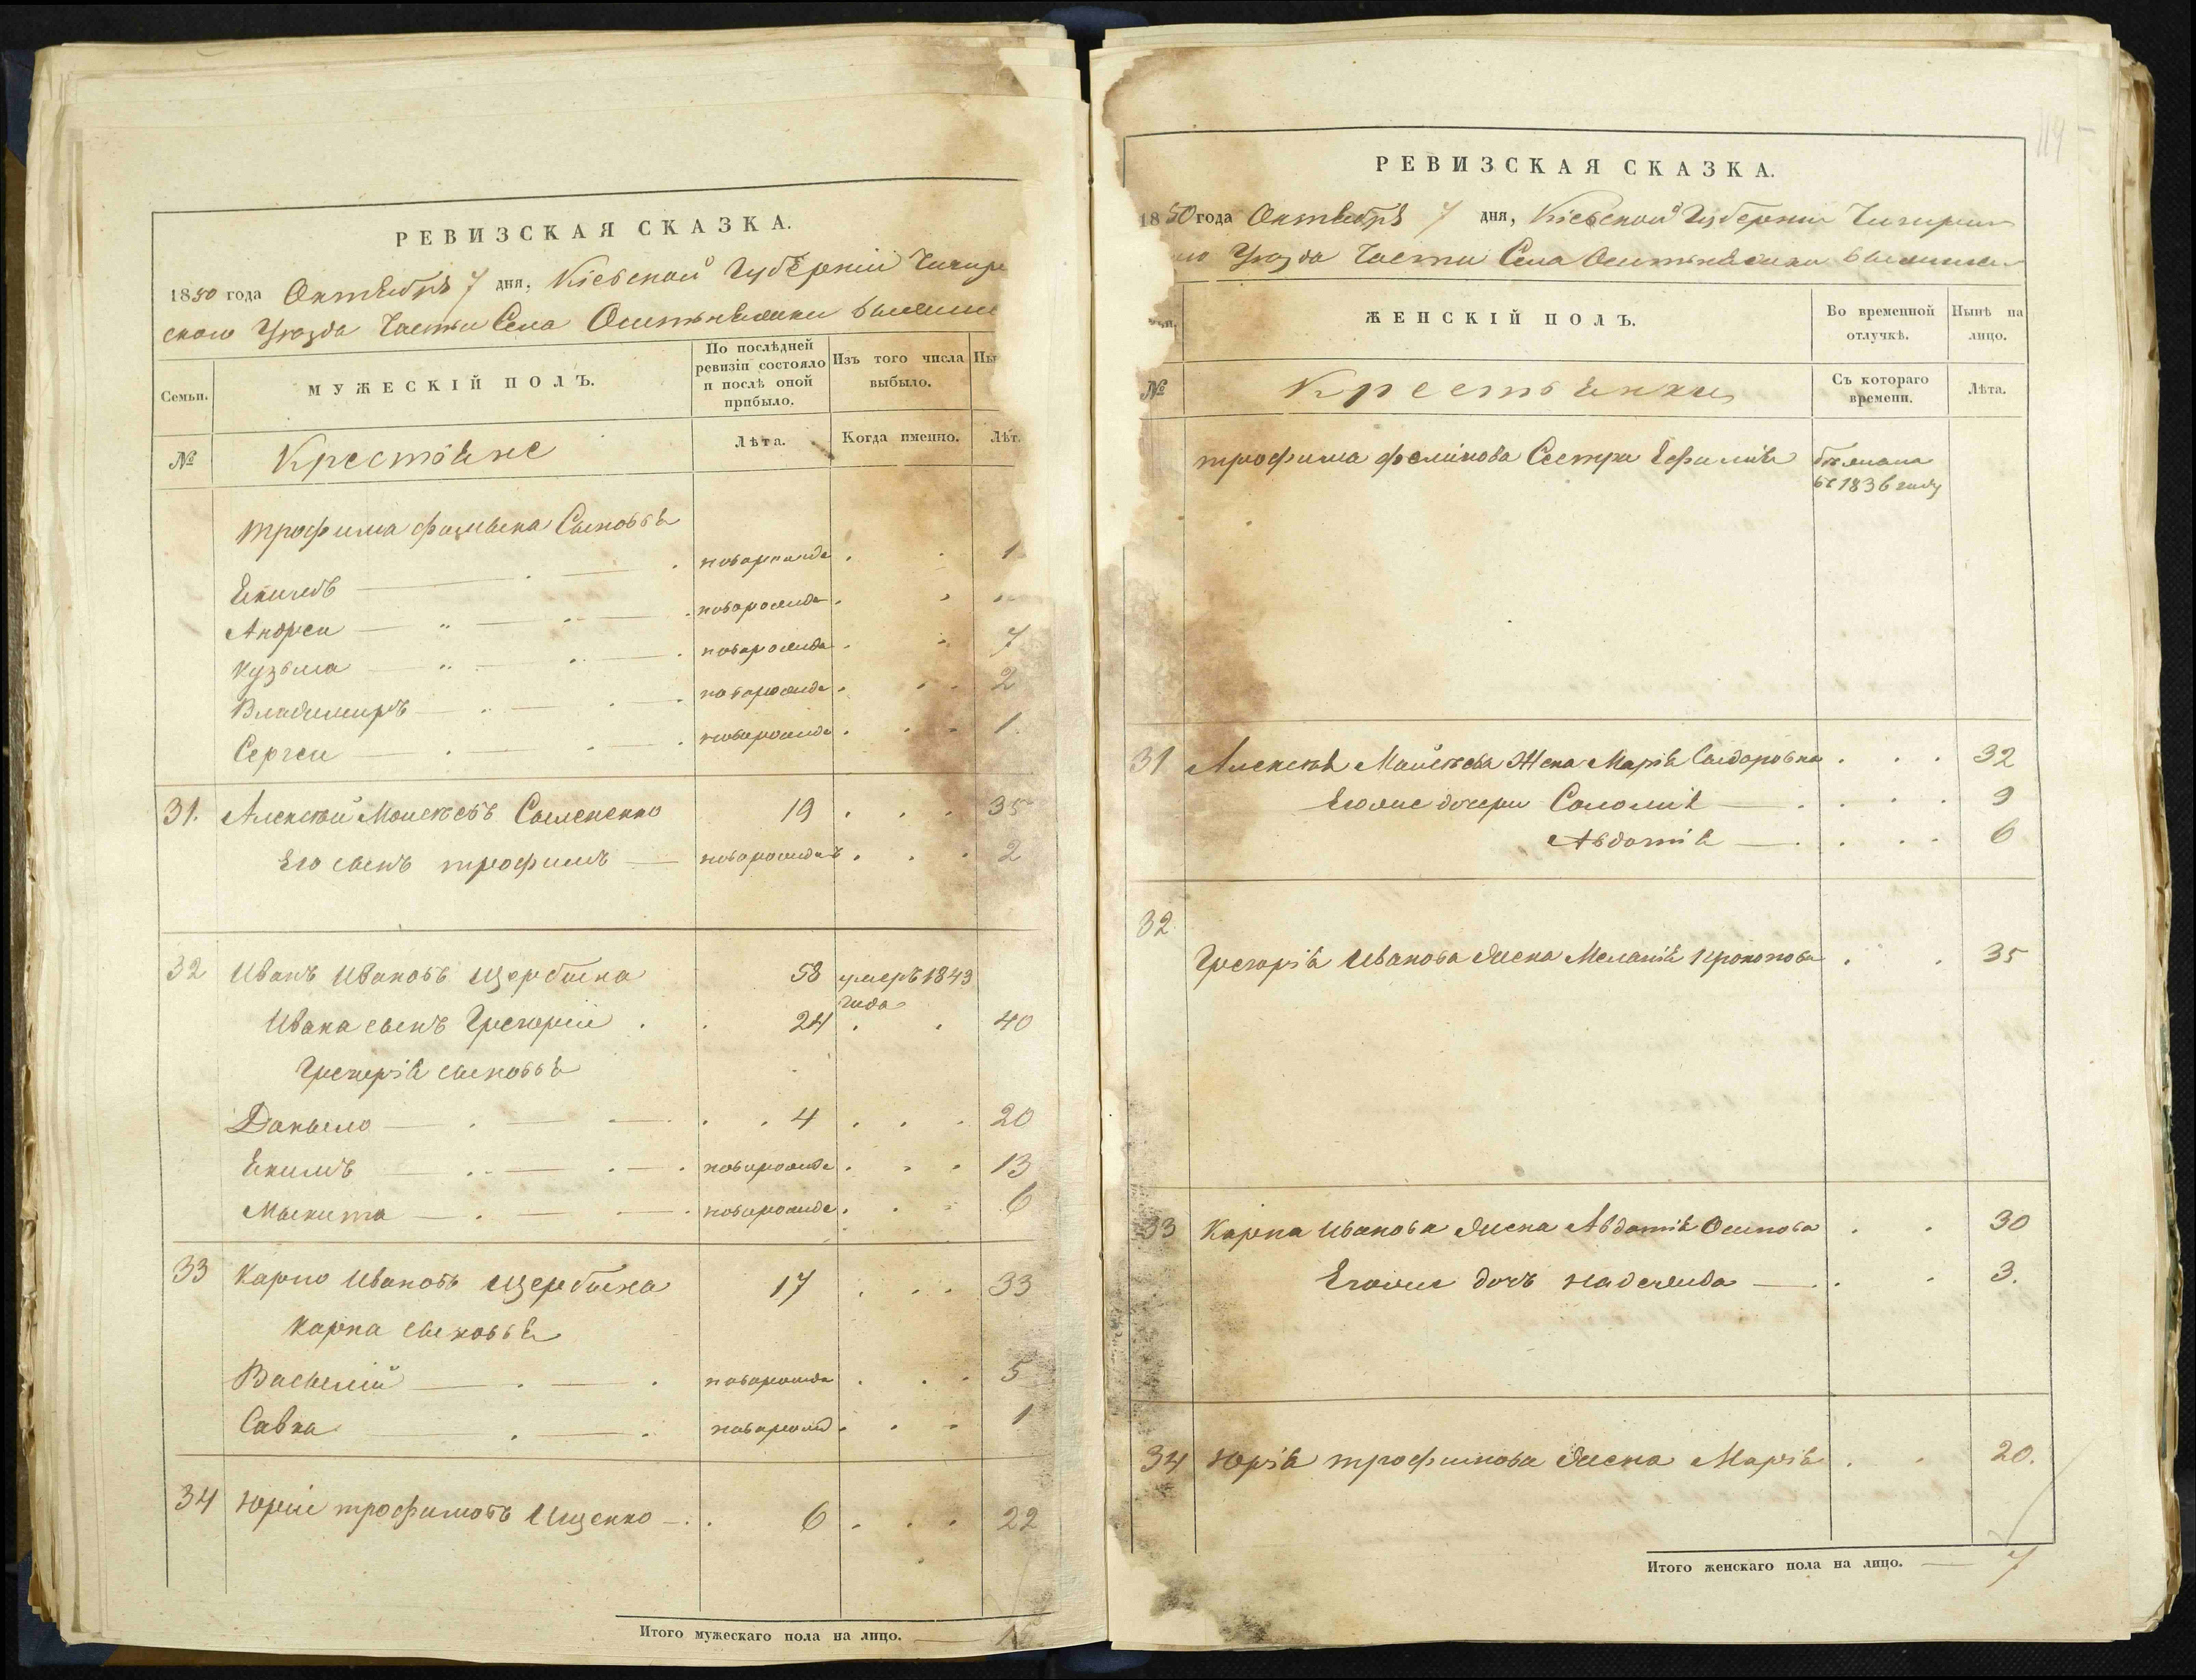 РЕВИЗСКАЯ СКАЗКА.
1850 года Октября 7 дня, Кіевской Губерніи Чигири
ского Уезда Части Села Оситняжки
Семьи.
МУЖЕСКІЙ ПОЛЪ.
По послѣдней ревизіи состояло и послѣ оной прибыло.
Изъ того числа выбыло.
Ны
№
Крестьяне
Лѣта.
Когда именно.
Лѣт.
трофима сыновья
Екимъ новорожде 1
Андреи новорожде
Кузьма новорожде 7
Владимиръ новорожде 2
Сергеи новорожде 1
31. Алексѣй Моисѣевъ Семененко 19 35
Его сынъ трофимъ новорожденъ 2
32 Иванъ Ивановъ Щербына 58 умеръ 1843 года
Ивана сынъ Григорій 24 40
Григорія сыновья
Даныло 4 20
Екимъ новорожде 13
Мыкита новорожде 6
33 Карпо Ивановъ Щербына 17 33
Карпа сыновья
Васылій новорожде 5
Савка новорожд 1
34 Юрій трофимовъ Ищенко 6 22
Итого мужескаго пола на лицо.
РЕВИЗСКАЯ СКАЗКА.
119
1850 года Октября 7 дня, Кіевской Губерніи Чигирин
го Уезда Части Села Оситняжки
ьи.
ЖЕНСКІЙ ПОЛЪ.
Во временной отлучкѣ.
Нынѣ на лицо.
№
Крестьянки
Съ котораго времени.
Лѣта.
трофима Сестра Ефимія
въ 1836 году
31 Алексѣя Моисѣева Жена Марія Сыдоровна 32
Егоже дочери Соломія 9
Авдотія 6
32
Григорія Иванова жена Меланія Прокопова 35
33 Карпа Иванова жена Авдотія Осипова 30
Егоже дочъ надежда 3.
34 Юрія трофимова жена Марія 20.
Итого женскаго пола на лицо. 7